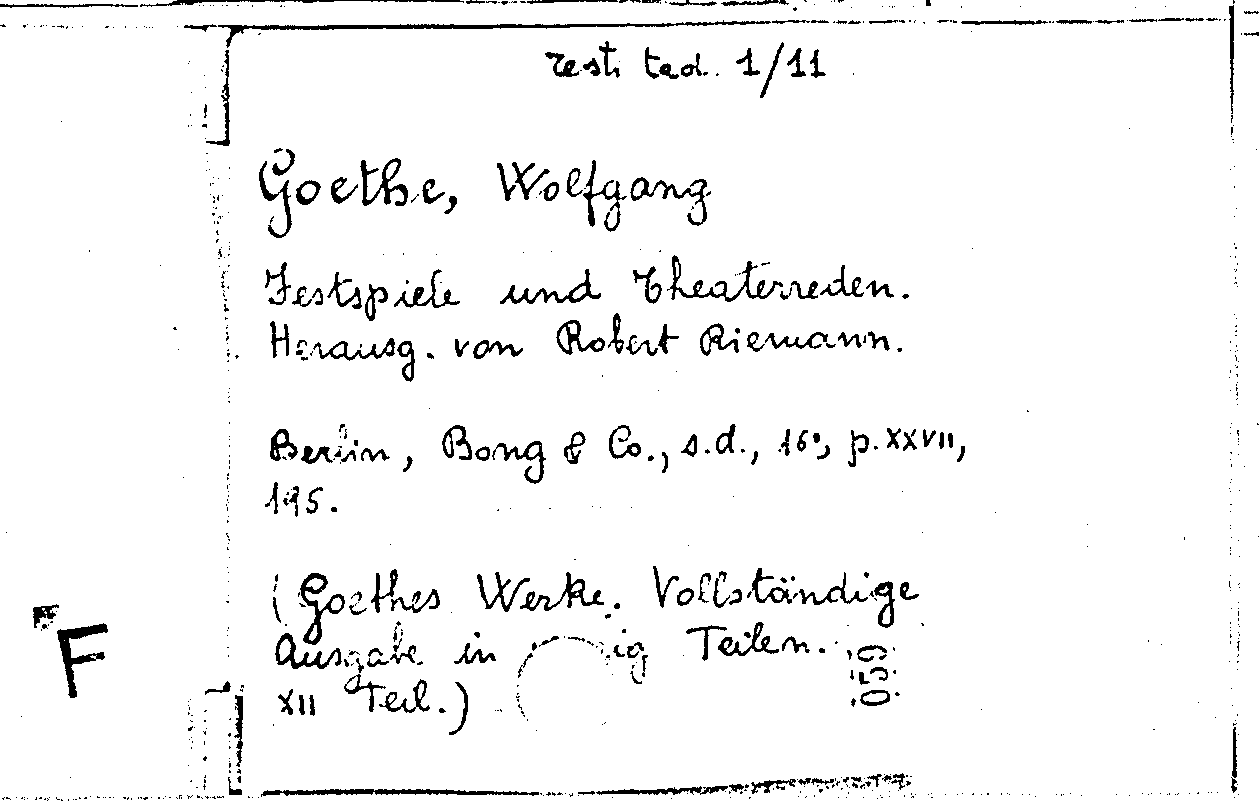 testi ted. 1/11
Goethe, Wolfgang
Festspiele und Theaterreden.
Herausg. von Robert Riemann.
Berlin, Bong & Co., s.d., 16°, p. XXVII,
195.
(Goethes Werke. Vollständige
Ausgabe in Teilen.
XII Teil.)
059
F